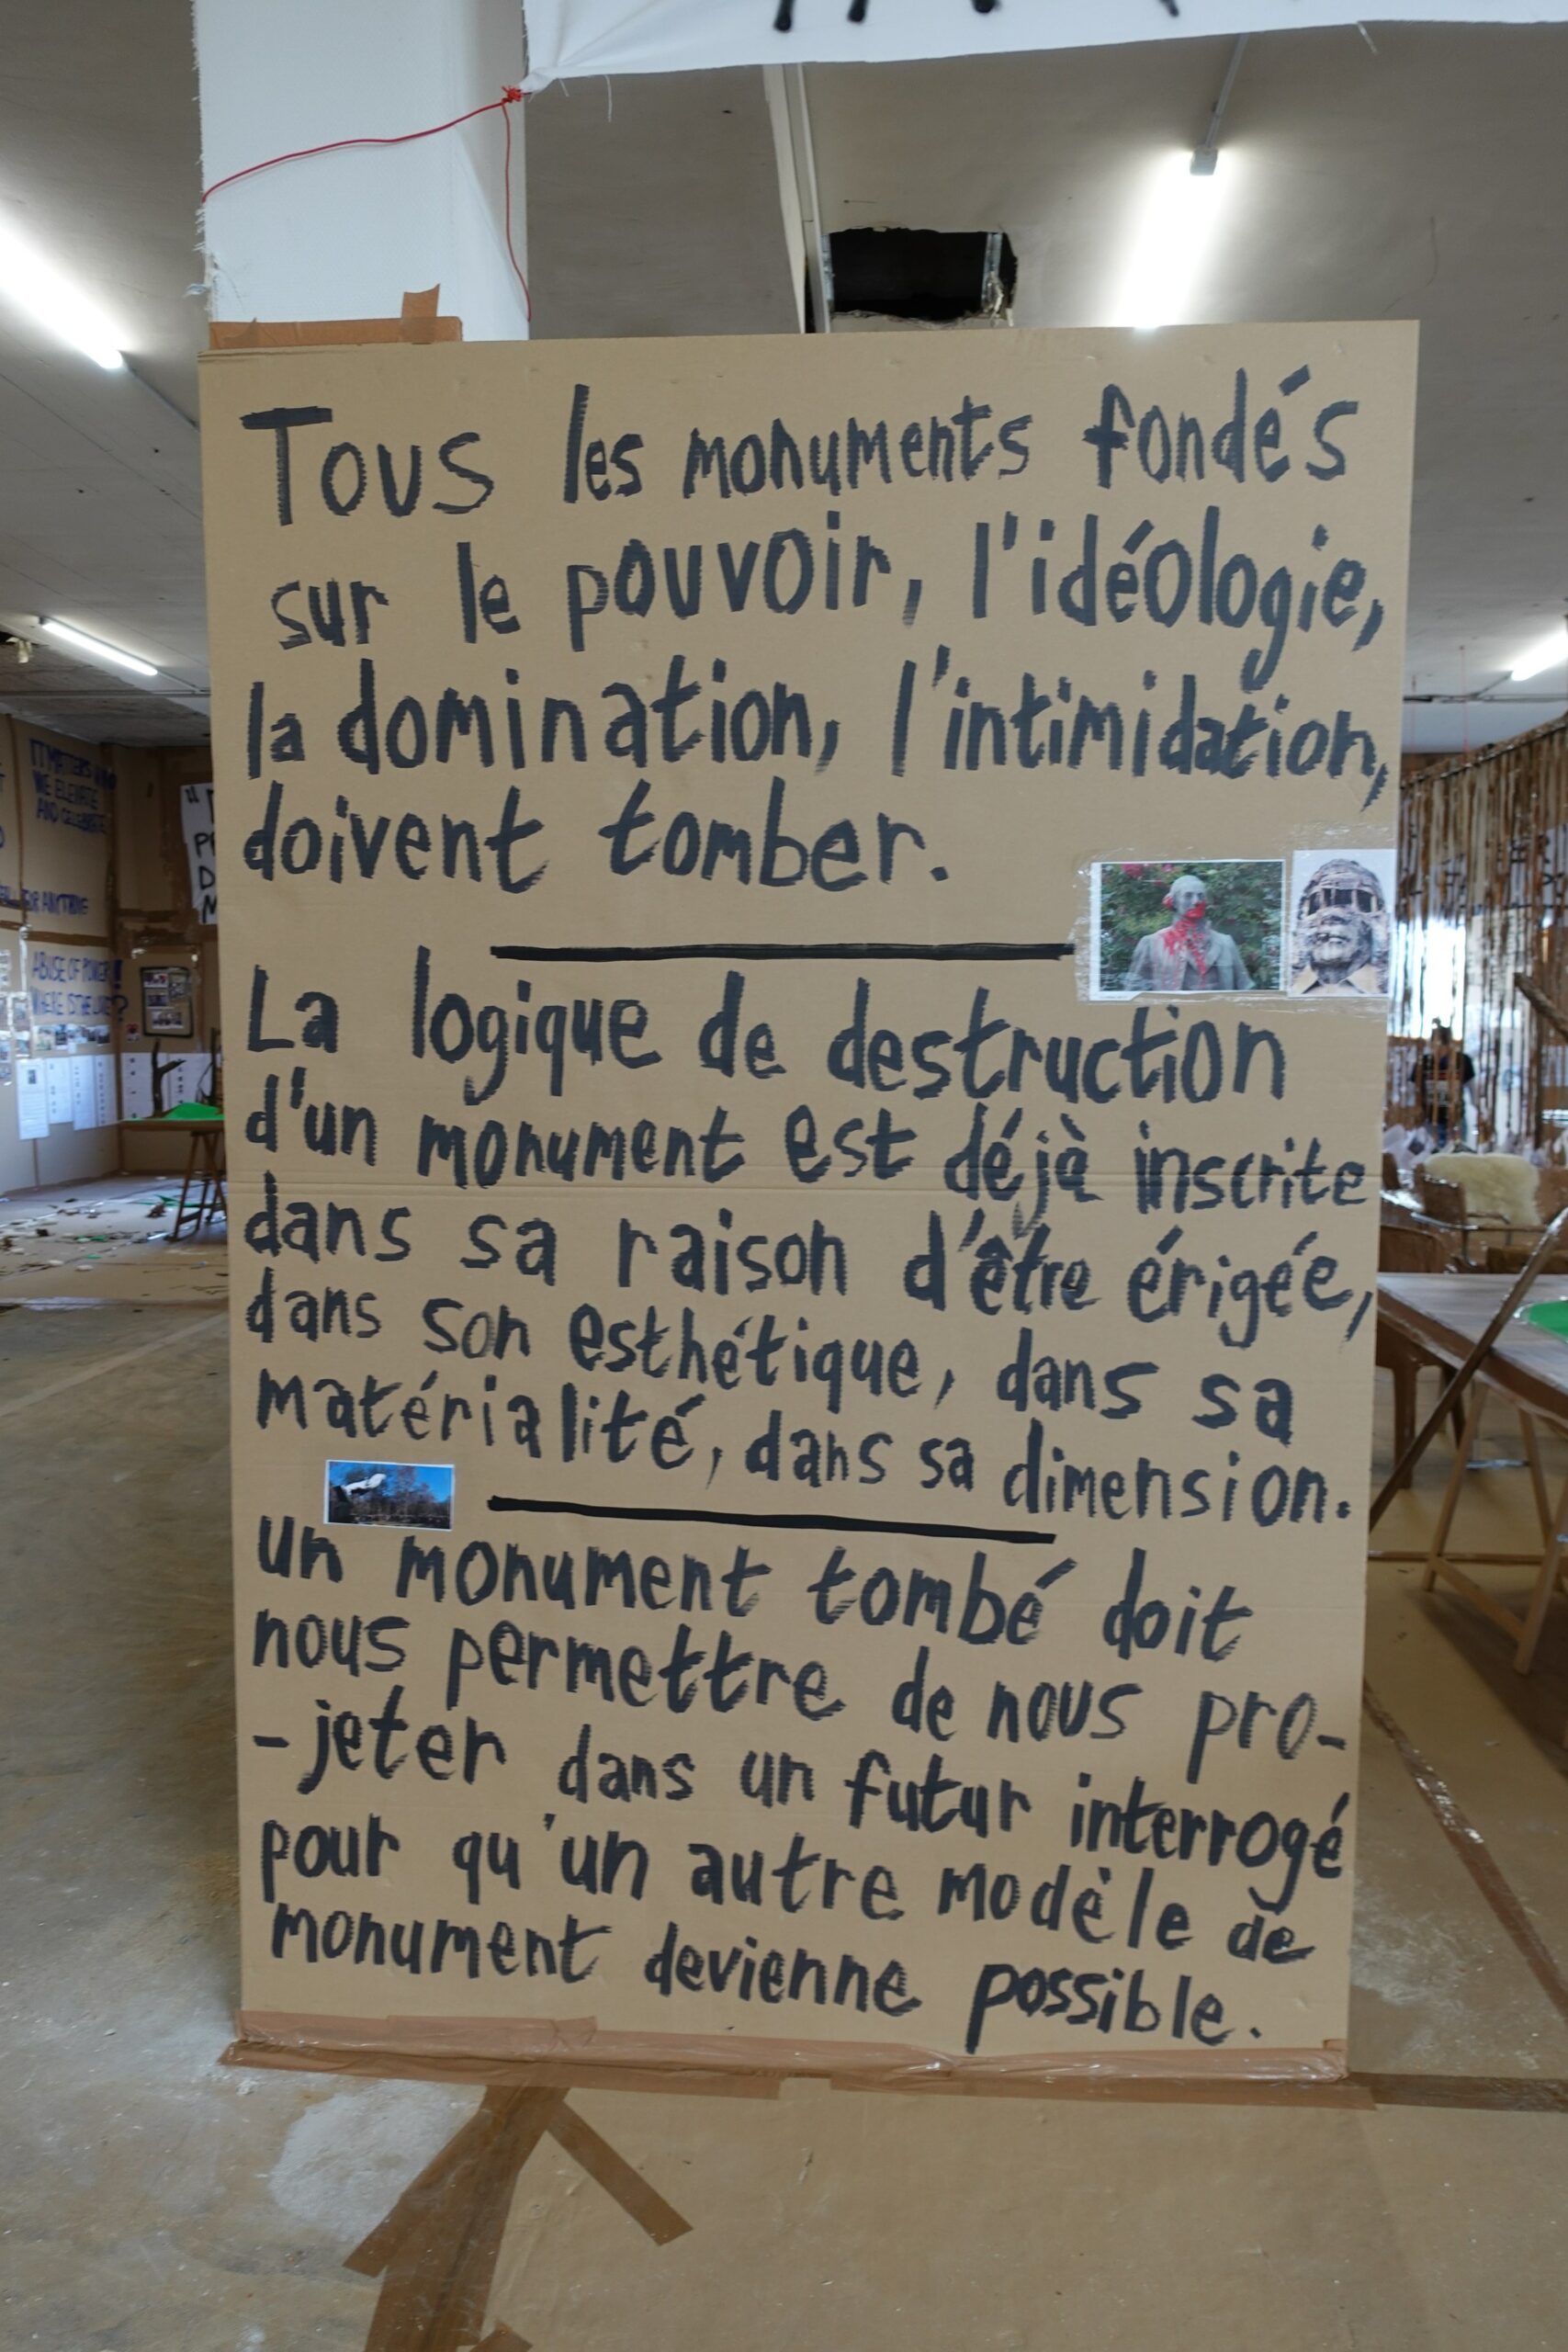 Tous les monuments fondés
sur le pouvoir, l'idéologie,
la domination, l'intimidation,
doivent tomber.
La logique de destruction
d'un monument est déjà inscrite
dans sa raison d'être érigée,
dans son esthétique, dans sa
matérialité, dans sa dimension.
un monument tombé doit
nous permettre de nous pro-
-jeter dans un futur interrogé
pour qu'un autre modèle de
monument devienne possible.
IT MATTERS WHO
WE ELEVATE
AND CELEBRATE
FOR ANYTHING
ABUSE OF POWER!
WHERE IS THE LOVE?